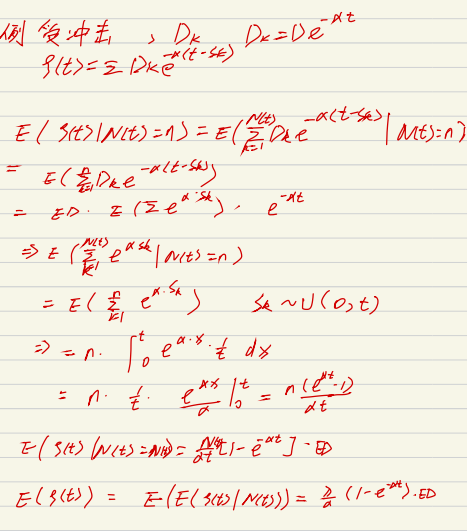 例 受冲击, D_k D_k = De^{-αt}
ξ(t) = Σ D_k e^{-α(t-S_k)}
E(ξ(t)|N(t)=n) = E(Σ_{k=1}^{N(t)} D_k e^{-α(t-S_k)} | N(t)=n)
= E(Σ_{k=1}^{n} D_k e^{-α(t-S_k)})
= ED · E(Σ e^{α·S_k}) · e^{-αt}
⇒ E(Σ_{k=1}^{N(t)} e^{αS_k} | N(t)=n)
= E(Σ_{k=1}^{n} e^{α·S_k}) S_k ~ U(0,t)
⇒ = n · ∫_0^t e^{α·x} · 1/t dx
= n · 1/t · e^{αx}/α |_0^t = n(e^{αt}-1)/αt
E(ξ(t)|N(t)=N(t)) = N(t)/αt [1-e^{-αt}] · ED
E(ξ(t)) = E(E(ξ(t)|N(t))) = λ/α (1-e^{-αt}) · ED